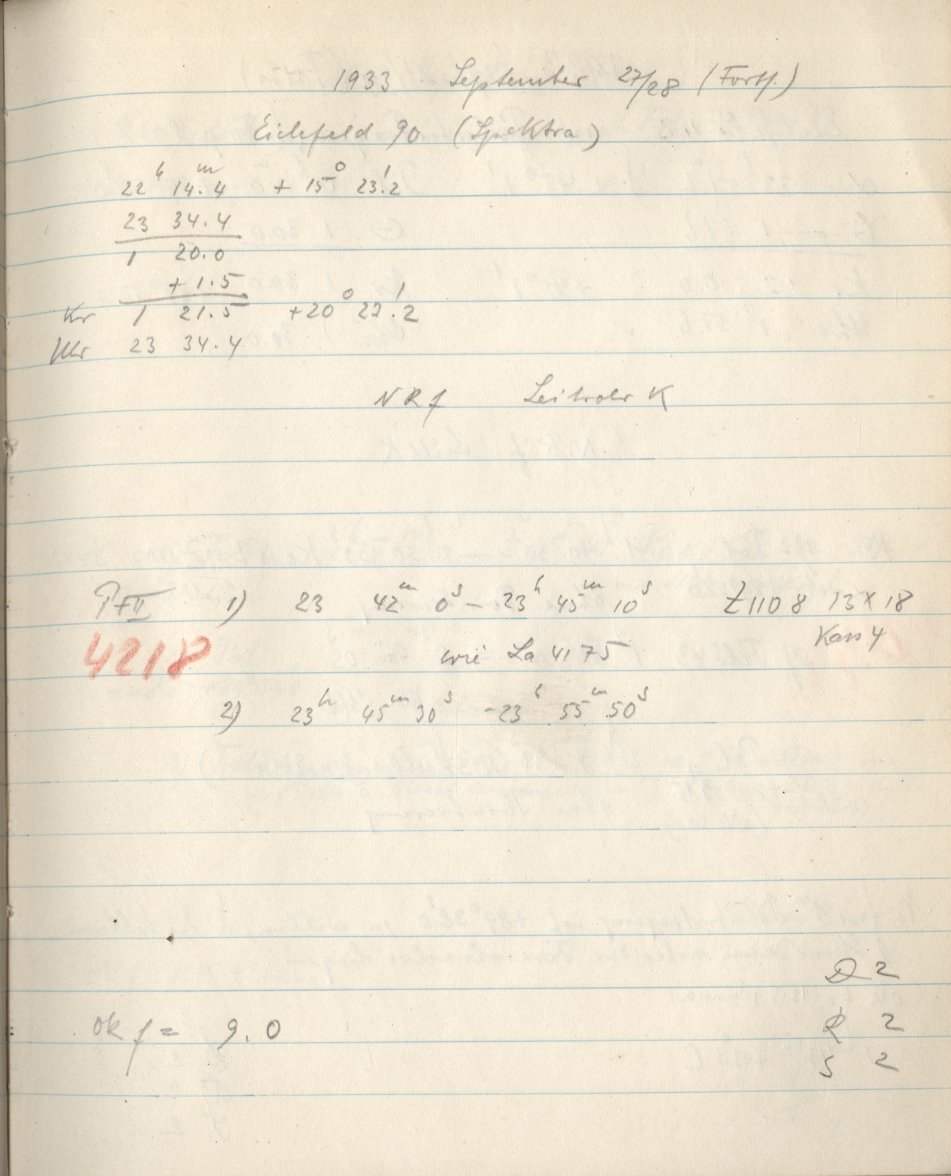 1933 September 27/28 (Forts.)
Eichfeld 90 (Spektra)
22ʰ 14ᵐ.4 + 15⁰ 23!2
23 34.4
1 20.0
+ 1.5
Kr 1 21.5 +20⁰ 22!2
Uhr 23 34.4
NRf Leitrohr K
PfII 1) 23 42ᵐ 0ˢ – 23ʰ 45ᵐ 10ˢ Z1108 13x18
Kass 4
4218 wie La 4175
2) 23ʰ 45ᵐ 30ˢ - 23ʰ 55ᵐ 50ˢ
D 2
Ok f = 9.0 R 2
S 2